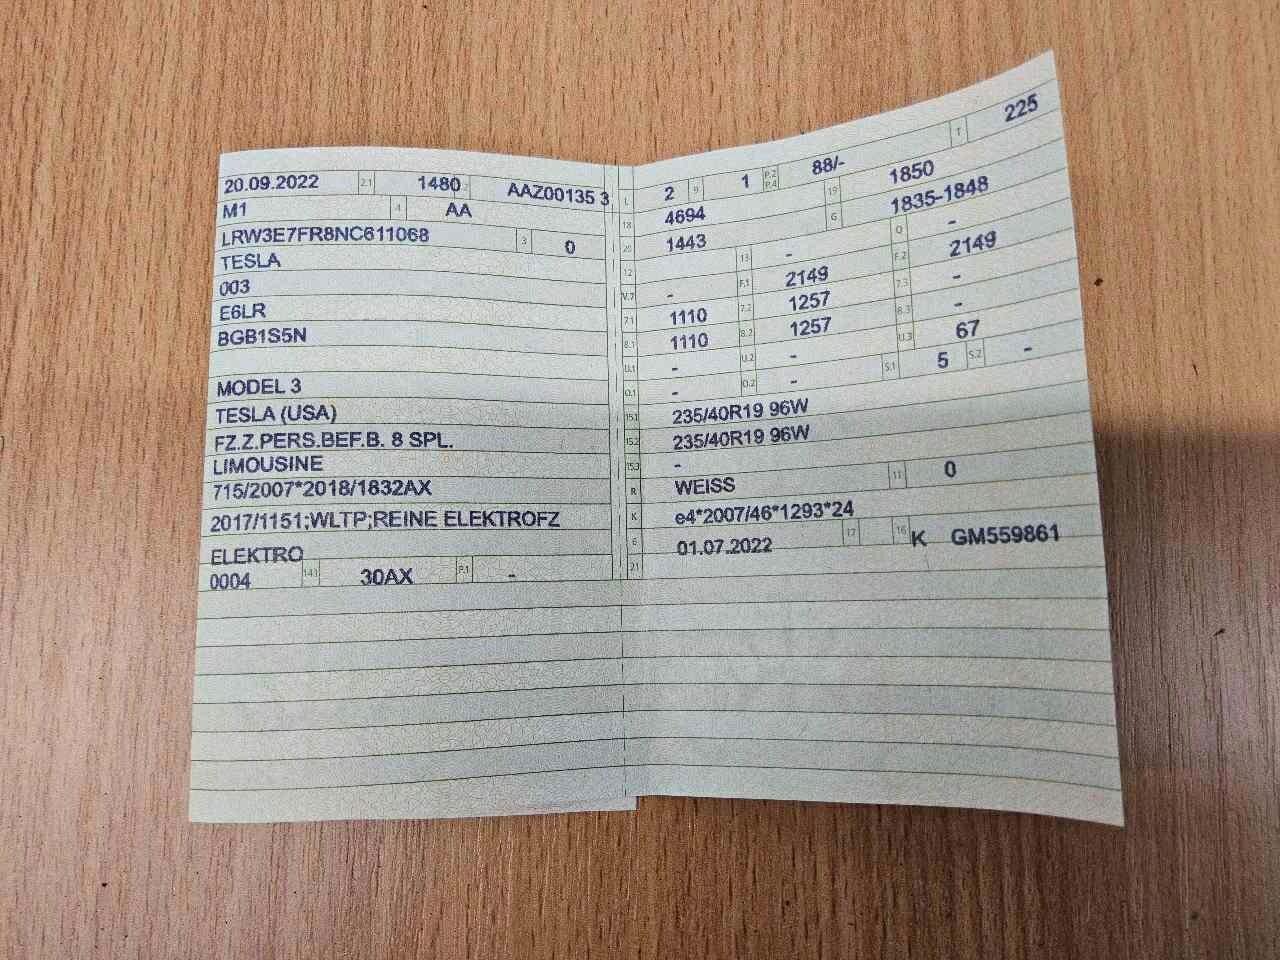 20.09.2022 2.1 1480 2.2 AAZ00135 3
M1 4 AA
LRW3E7FR8NC611068 3 0
TESLA
003
E6LR
BGB1S5N
MODEL 3
TESLA (USA)
FZ.Z.PERS.BEF.B. 8 SPL.
LIMOUSINE
715/2007*2018/1832AX
2017/1151;WLTP;REINE ELEKTROFZ
ELEKTRO
0004 14.1 30AX P.1 -
L 2 9 1 P.2 P.4 88/- T 225
18 4694 19 1850
20 1443 G 1835-1848
12 13 - Q -
V.7 - F.1 2149 F.2 2149
7.1 1110 7.2 1257 7.3 -
8.1 1110 8.2 1257 8.3 -
U.1 - U.2 - U.3 67
O.1 - O.2 - S.1 5 S.2 -
15.1 235/40R19 96W
15.2 235/40R19 96W
15.3 -
R WEISS 11 0
K e4*2007/46*1293*24
6 01.07.2022 17 16 K GM559861
21